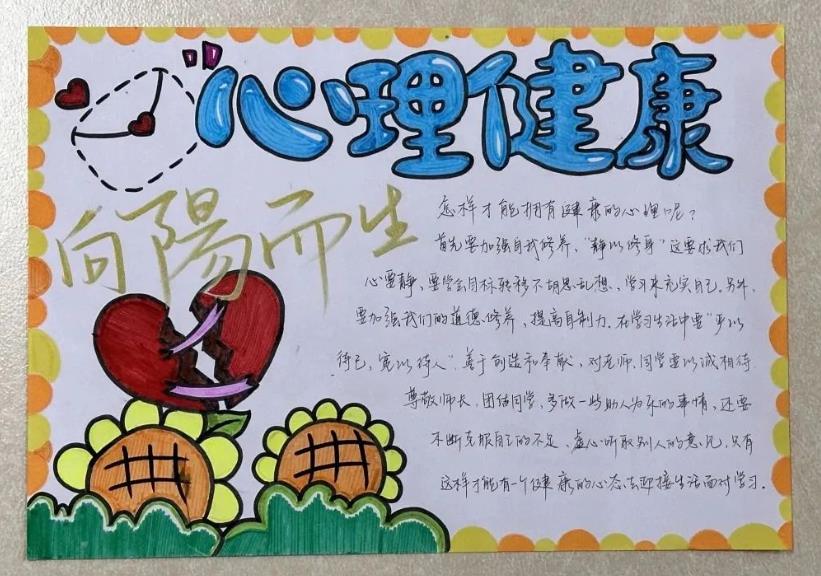 心理健康
向陽而生
怎样才能拥有健康的心理呢？
首先要加强自我修养，"静以修身"这要求我们
心要静、要学会目标转移不胡思乱想、学习来充实自己。另外，
要加强我们的道德修养，提高自制力。在学习生活中要"严以
待己，宽以待人"善于创造和奉献，对老师、同学要以诚相待
尊敬师长，团结同学，多做一些助人为乐的事情，还要
不断克服自己的不足，虚心听取别人的意见，只有
这样才能有一个健康的心态去迎接生活面对学习。